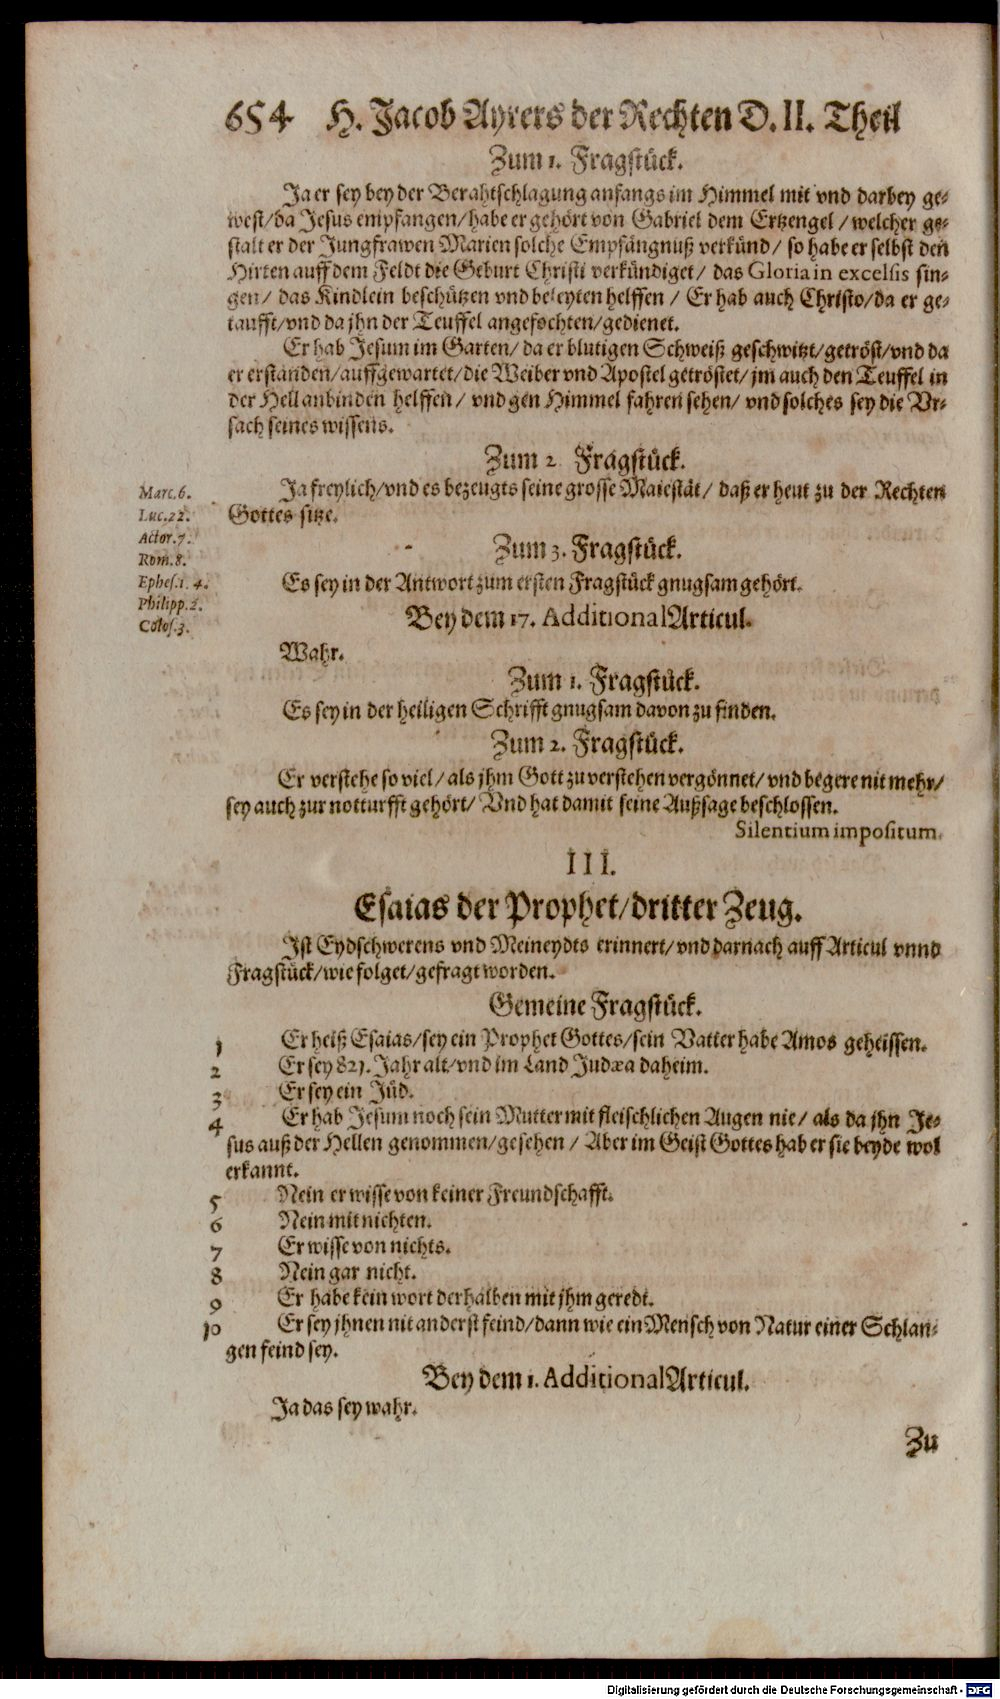 654 H. Jacob Ayrers der Rechten D. II. Theil
Zum 1. Fragstück.
Ja er sey bey der Berahtschlagung anfangs im Himmel mit vnd darbey ge-
west/da Jesus empfangen/habe er gehört von Gabriel dem Ertzengel/welcher ge-
stalt er der Jungfrawen Marien solche Empfängnuß verkünd/ so habe er selbst den
Hirten auff dem Feldt die Geburt Christi verkündiget/ das Gloria in excelsis sin-
gen/ das Kindlein beschützen vnd beleyten helffen / Er hab auch Christo/da er ge-
taufft/vnd da jhn der Teuffel angefochten/gedienet.
Er hab Jesum im Garten/ da er blutigen Schweiß geschwitzt/getröst/vnd da
er erstanden/auffgewartet/die Weiber vnd Apostel getröstet/jm auch den Teuffel in
der Hell anbinden helffen/ vnd gen Himmel fahren sehen/ vnd solches sey die Vr-
sach seines wissens.
Zum 2. Fragstück.
Ja freylich/vnd es bezeugts seine grosse Maiestät/ daß er heut zu der Rechten
Gottes sitze.
Marc.6.
Luc.22.
Actor.7.
Rom.8.
Ephes.1. 4.
Philipp.2.
Colos.3.
Zum 3. Fragstück.
Es sey in der Antwort zum ersten Fragstück gnugsam gehört.
Bey dem 17. Additional Articul.
Wahr.
Zum 1. Fragstück.
Es sey in der heiligen Schrifft gnugsam davon zu finden.
Zum 2. Fragstück.
Er verstehe so viel/ als jhm Gott zu verstehen vergönnet/ vnd begere nit mehr/
sey auch zur notturfft gehört/ Vnd hat damit seine Außsage beschlossen.
Silentium impositum.
III.
Esaias der Prophet/dritter Zeug.
Ist Eydschwerens vnd Meineydts erinnert/vnd darnach auff Articul vnnd
Fragstück/wie folget/gefragt worden.
Gemeine Fragstück.
1 Er heiß Esaias/sey ein Prophet Gottes/sein Vatter habe Amos geheissen.
2 Er sey 821. Jahr alt/vnd im Land Judæa daheim.
3 Er sey ein Jüd.
4 Er hab Jesum noch sein Mutter mit fleischlichen Augen nie/ als da jhn Je-
sus auß der Hellen genommen/gesehen/ Aber im Geist Gottes hab er sie beyde wol
erkannt.
5 Nein er wisse von keiner Freundschafft.
6 Nein mit nichten.
7 Er wisse von nichts.
8 Nein gar nicht.
9 Er habe kein wort derhalben mit jhm geredt.
10 Er sey jhnen nit anderst feind/dann wie ein Mensch von Natur einer Schlan-
gen feind sey.
Bey dem 1. Additional Articul.
Ja das sey wahr.
Zu
Digitalisierung gefördert durch die Deutsche Forschungsgemeinschaft - DFG